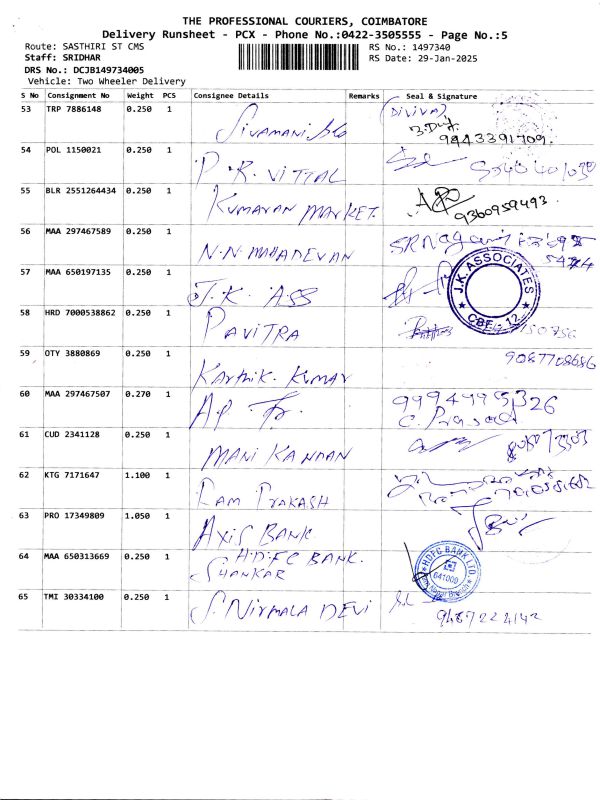 THE PROFESSIONAL COURIERS, COIMBATORE
Delivery Runsheet - PCX - Phone No.:0422-3505555 - Page No.:5
Route: SASTHIRI ST CMS
RS No.: 1497340
Staff: SRIDHAR
RS Date: 29-Jan-2025
DRS No.: DCJB149734005
Vehicle: Two Wheeler Delivery
S No Consignment No Weight PCS Consignee Details Remarks Seal & Signature
53 TRP 7886148 0.250 1 Sivamani (DIVIVA) 9443391709
54 POL 1150021 0.250 1 P.R. VITTAL
55 BLR 2551264434 0.250 1 KUMARAN MARKET 9360959493
56 MAA 297467589 0.250 1 N.N. MAHADEVAN SR Nagar
57 MAA 650197135 0.250 1 J.K. ASS J.K. ASSOCIATES CBE-12
58 HRD 7000538862 0.250 1 PAVITRA
59 OTY 3880869 0.250 1 Karthik. Kumar 9087708686
60 MAA 297467507 0.270 1 9994495326
C. Prasad
61 CUD 2341128 0.250 1 MANI KANDAN
62 KTG 7171647 1.100 1 RAM PRAKASH
63 PRO 17349809 1.050 1 AXIS BANK
64 MAA 650313669 0.250 1 HDFC BANK. HDFC BANK LTD. 641009
SHANKAR
65 TMI 30334100 0.250 1 S. NIRMALA DEVI 9487224142